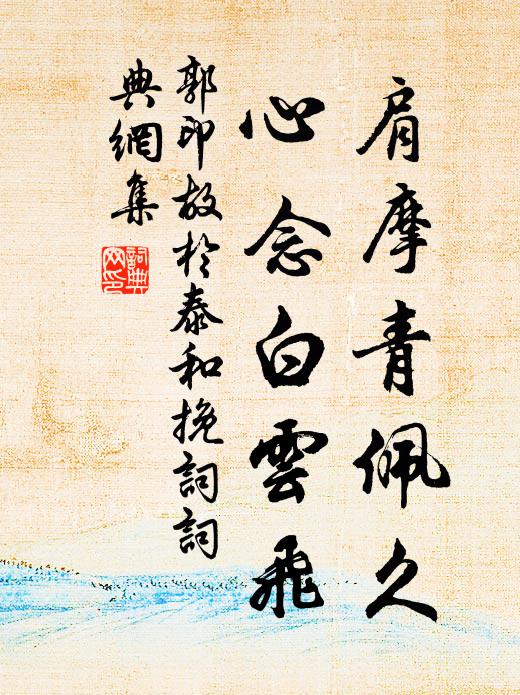 肩摩青佩久
心念白雲飛
郭印故於泰和挽詞詞
典網集
詞典
网印